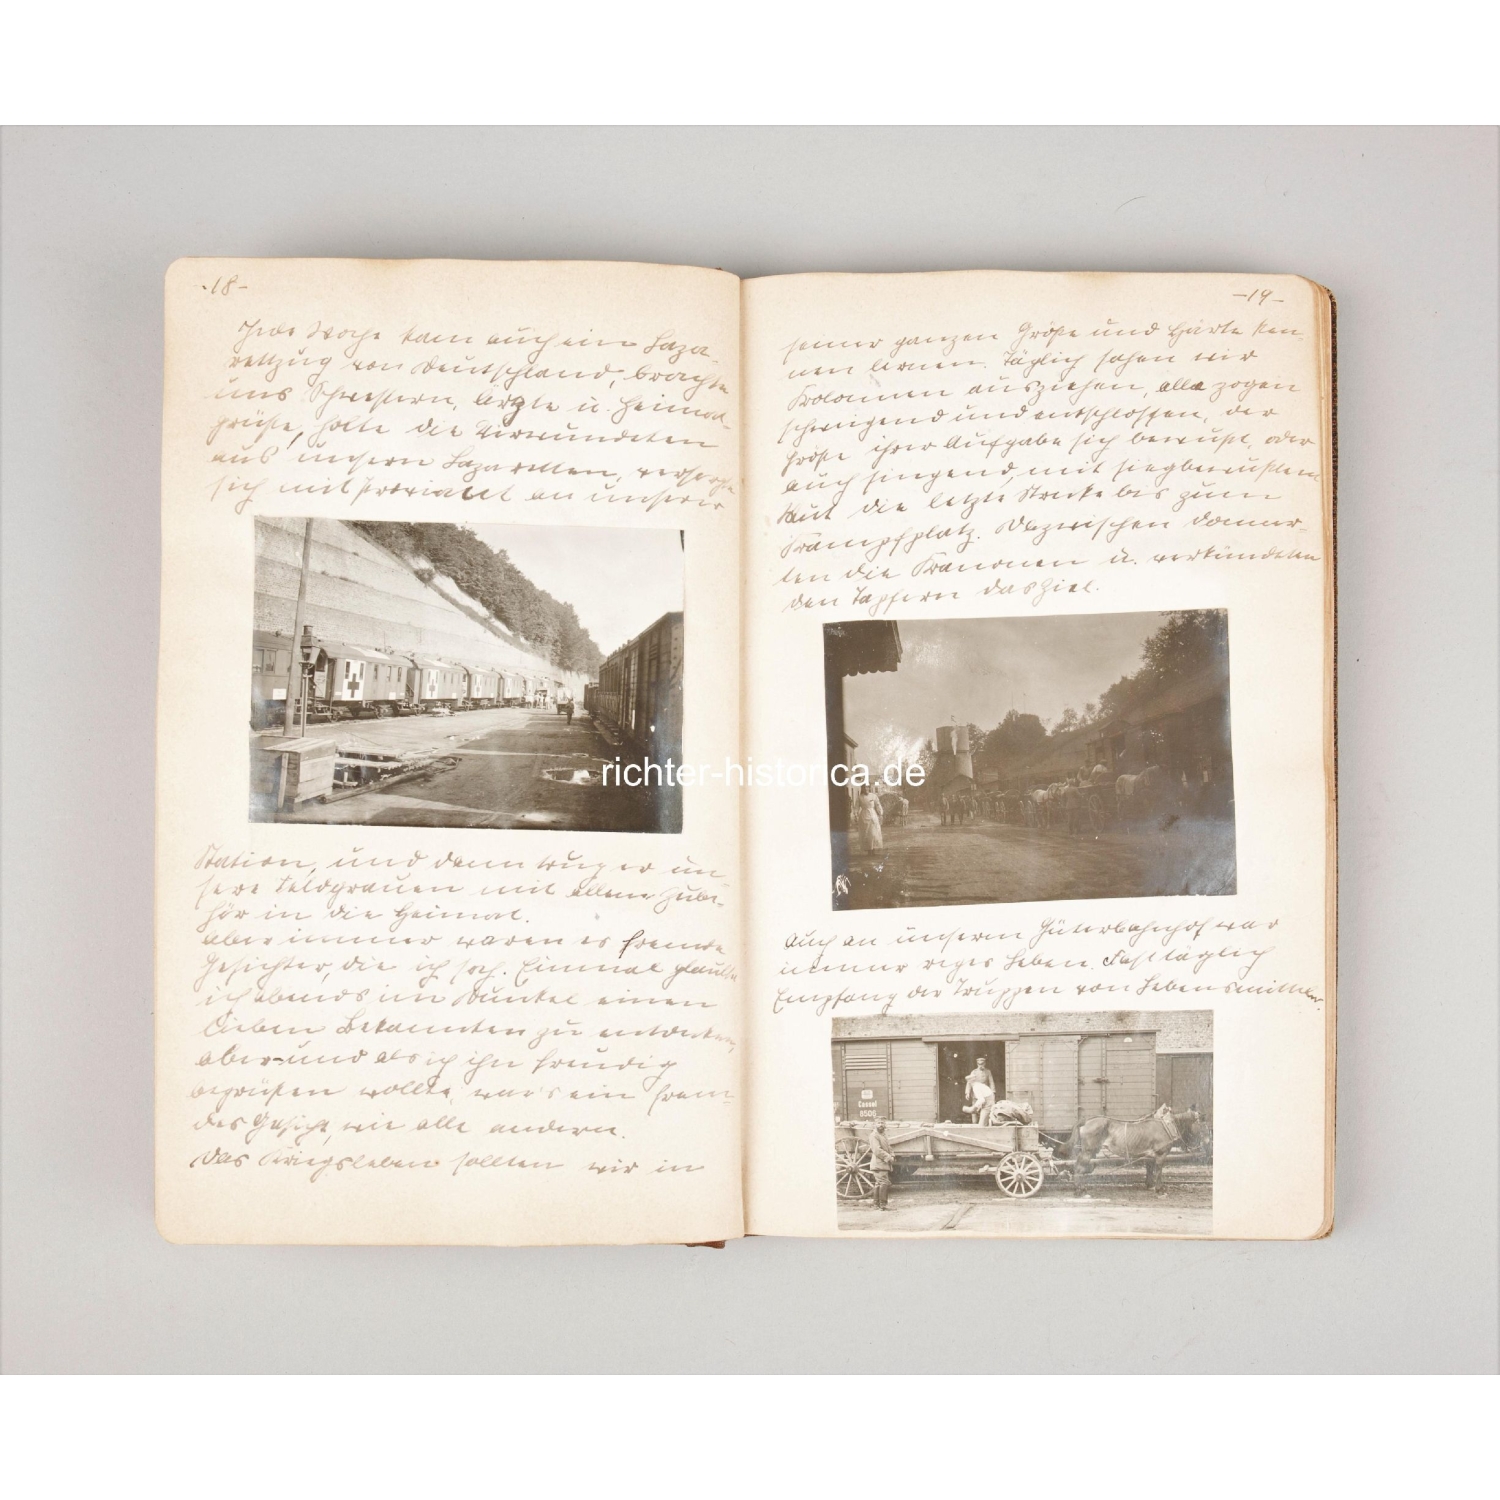 -18-
Jede Woche kam auch ein Laza-
rettzug von Deutschland, brachte
uns Schwestern, Ärzte u. Heimat-
grüße, holte die Verwundeten
aus unsern Lazaretten, versorgte
sich mit Proviant an unserer
Station, und dann trug er un-
sere Feldgrauen mit allem Zube-
hör in die Heimat.
Aber immer waren es fremde
Gesichter, die ich sah. Einmal glaubte
ich abends im Dunkel einen
lieben Bekannten zu entdecken,
aber und als ich ihn freudig
begrüßen wollte, war's ein frem-
des Gesicht, wie alle andern.
Das Kriegsleben sollten wir in
-19-
seiner ganzen Größe und Härte ken-
nen lernen. Täglich sahen wir
Kolonnen ausziehen, alle zogen
schweigend und entschlossen, der
Größe ihrer Aufgabe sich bewußt, oder
auch singend, mit siegbewußtem
Mut die letzte Strecke bis zum
Kampfplatz. Dazwischen donner-
ten die Kanonen u. verkündeten
den Tapfern das Ziel.
Auch an unserm Güterbahnhof war
immer reges Leben. Fast täglich
Empfang der Truppen von Lebensmitteln.
Cassel
8506
richter-historica.de